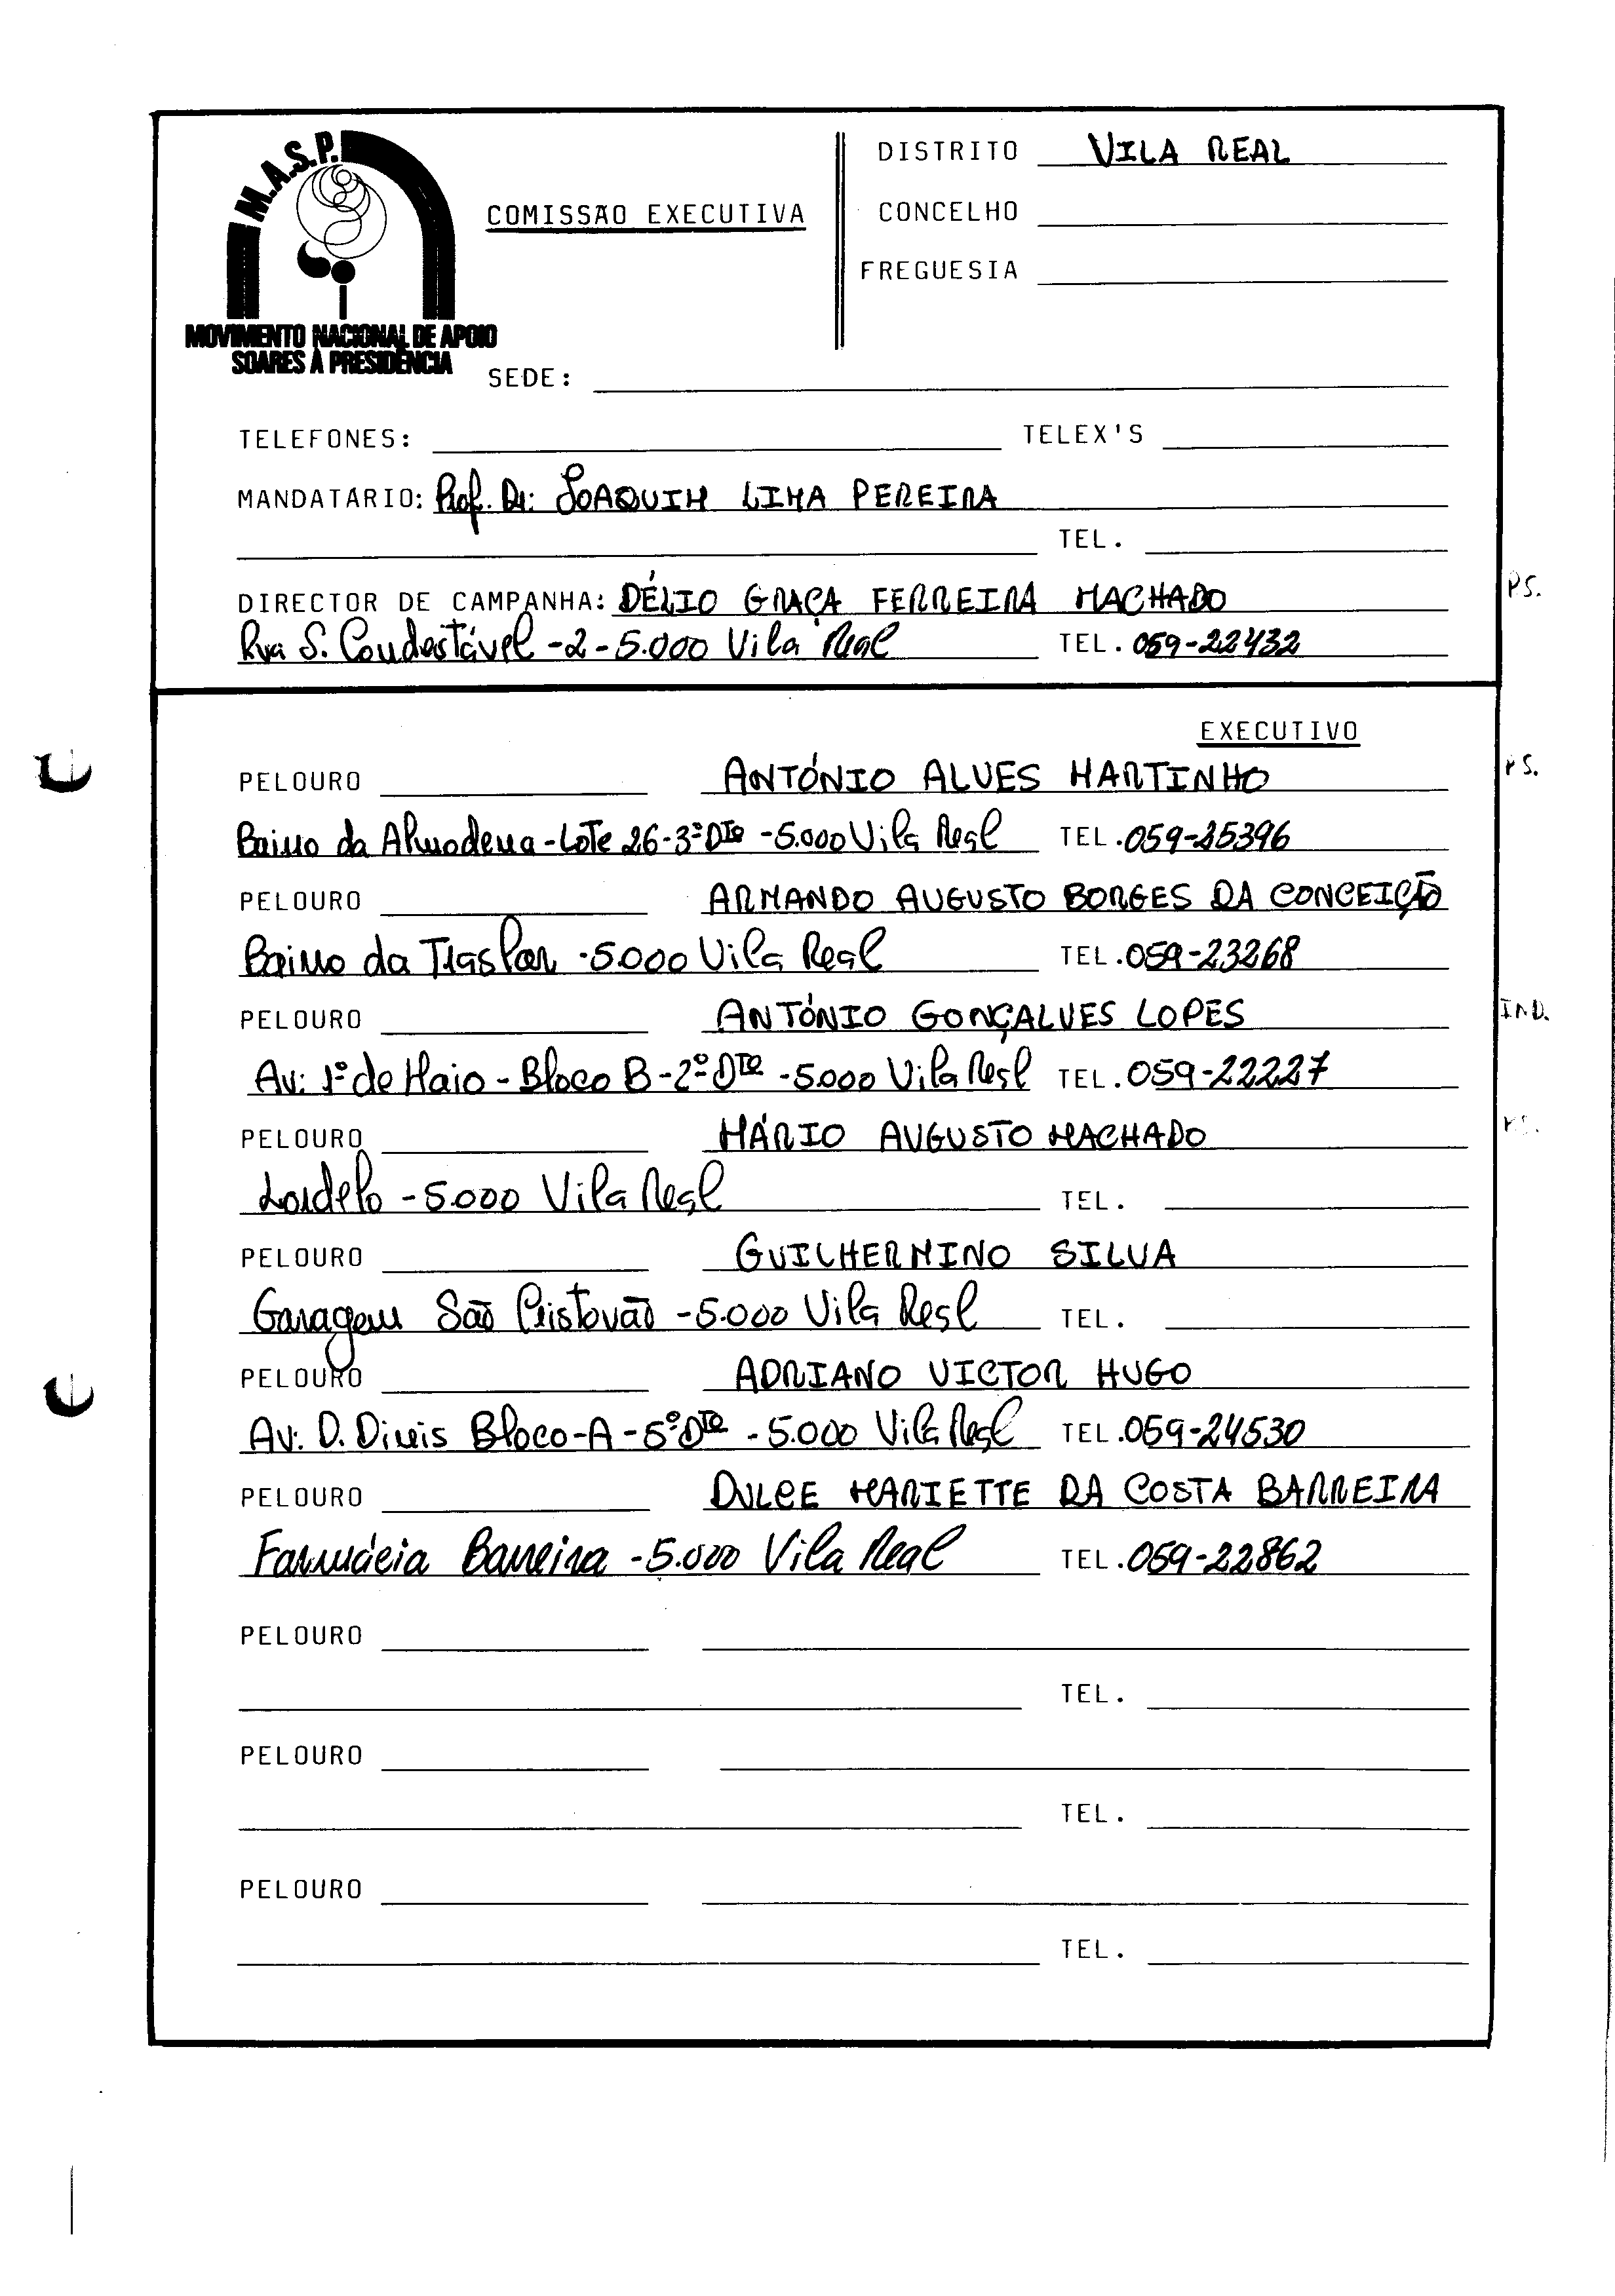 M.A.S.P.
MOVIMENTO NACIONAL DE APOIO
SOARES À PRESIDÊNCIA
COMISSÃO EXECUTIVA
DISTRITO VILA REAL
CONCELHO
FREGUESIA
SEDE:
TELEFONES: TELEX'S
MANDATÁRIO: Prof. Dr. JOAQUIM LIMA PEREIRA
TEL.
DIRECTOR DE CAMPANHA: DÉLIO GRAÇA FERREIRA MACHADO P.S.
Rua S. Condestável -2- 5.000 Vila Real TEL. 059-22432
EXECUTIVO
PELOURO ANTÓNIO ALVES MARTINHO P.S.
Bairro da Almodena - Lote 26-3º Dto - 5.000 Vila Real TEL. 059-25396
PELOURO ARMANDO AUGUSTO BORGES DA CONCEIÇÃO
Bairro da Traslar - 5.000 Vila Real TEL. 059-23268
PELOURO ANTÓNIO GONÇALVES LOPES IND.
Av: 1º de Maio - Bloco B - 2º Dto - 5.000 Vila Real TEL. 059-22227
PELOURO MÁRIO AUGUSTO MACHADO P.S.
Lordelo - 5.000 Vila Real TEL.
PELOURO GUILHERMINO SILVA
Garagem São Cristovão - 5.000 Vila Real TEL.
PELOURO ADRIANO VICTOR HUGO
Av. D. Dinis Bloco-A - 5º Dto - 5.000 Vila Real TEL. 059-24530
PELOURO DULCE MARIETTE DA COSTA BARREIRA
Farmácia Barreira - 5.000 Vila Real TEL. 059-22862
PELOURO
TEL.
PELOURO
TEL.
PELOURO
TEL.